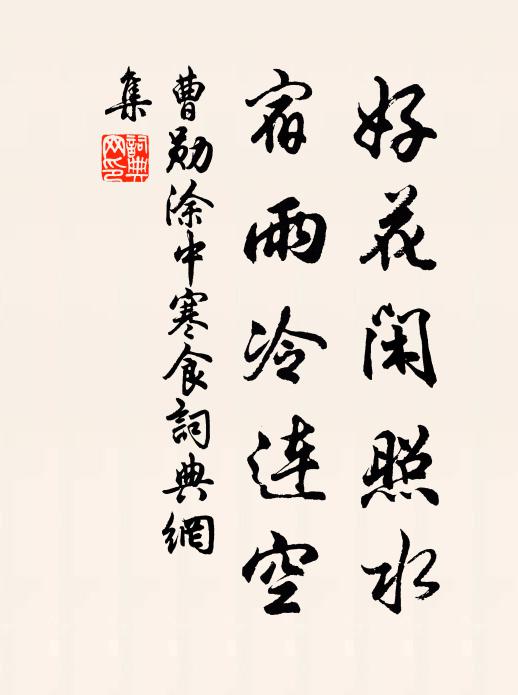 好花閑照水
宿雨冷連空
曹勛涂中寒食詞典網
集
詞典網印